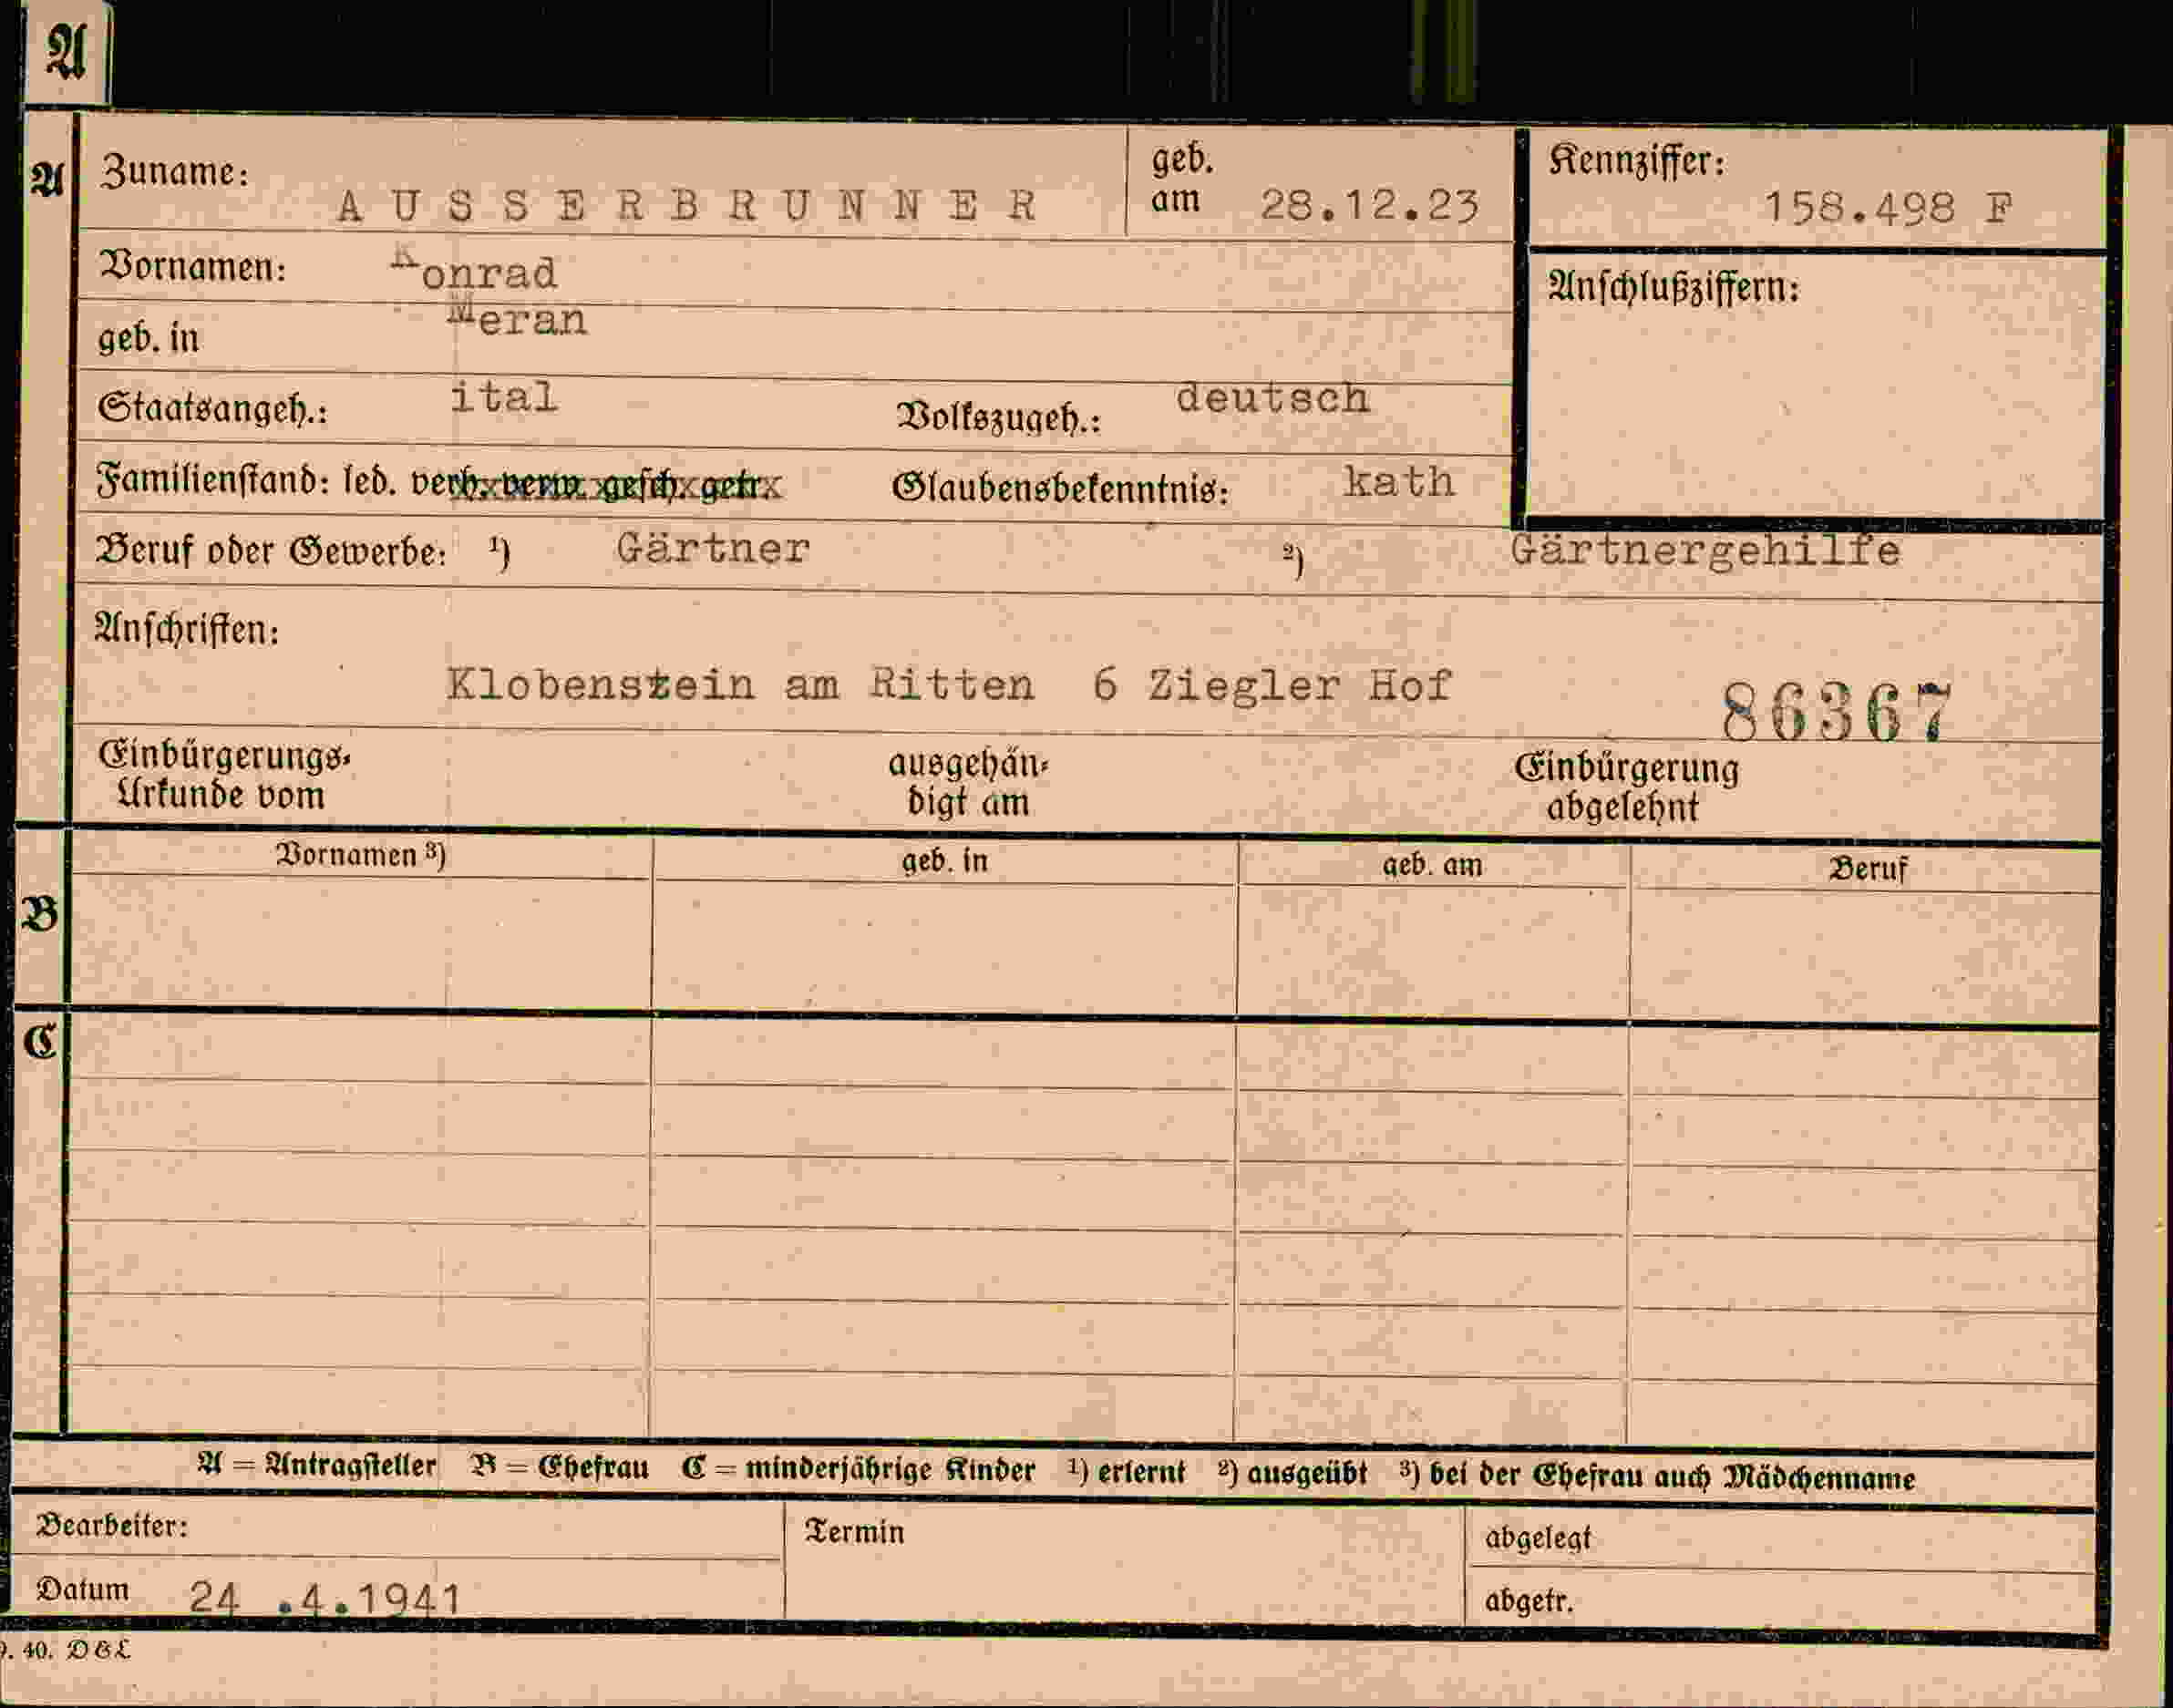 A
A
Zuname: AUSSERBRUNNER geb. am 28.12.23 Kennziffer: 158.498 F
Vornamen: Konrad
Anschlußziffern:
geb. in Meran
Staatsangeh.: ital Volkszugeh.: deutsch
Familienstand: led. verh. verw. gesch. getr. Glaubensbekenntnis: kath
Beruf oder Gewerbe: 1) Gärtner 2) Gärtnergehilfe
Anschriften:
Klobenstein am Ritten 6 Ziegler Hof 86367
Einbürgerungs- Urkunde vom ausgehän- digt am Einbürgerung abgelehnt
Vornamen 3) geb. in geb. am Beruf
B
C
A = Antragsteller B = Ehefrau C = minderjährige Kinder 1) erlernt 2) ausgeübt 3) bei der Ehefrau auch Mädchenname
Bearbeiter: Termin abgelegt
Datum 24 .4.1941 abgetr.
. 40. DGL